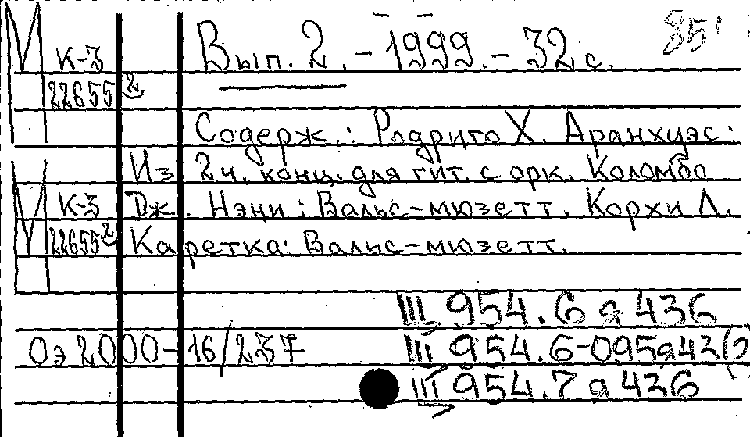 Вып. 2. - 1999. - 32 с. 85'
М К-3
22655²
Содерж.: Родриго Х. Аранхуэс:
Из 2 ч. конц. для гит. с орк. Коломбо
М К-3 Дж. Нэни: Вальс-мюзетт. Корхи Л.
22655² Каретка: Вальс-мюзетт.
III 954.6 я 436
Оэ 2000-16/237 III 954.6-095я43(2
III 954.7 я 436